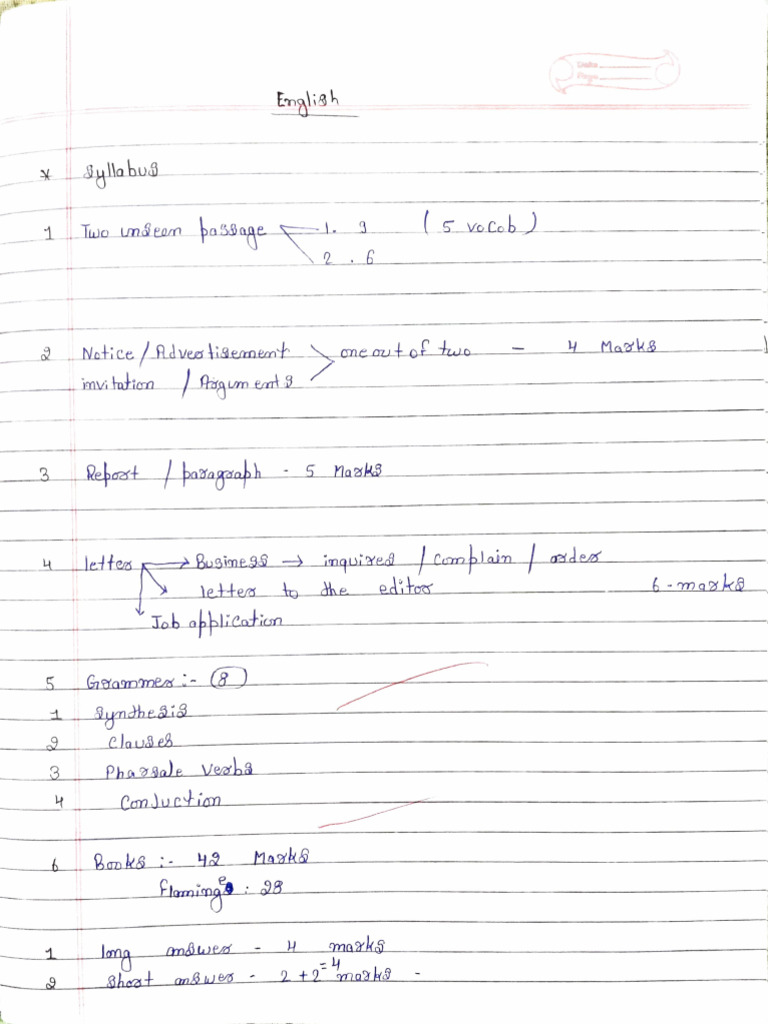 Date
Page
English
* Syllabus
1 Two unseen passage 1. 9 (5 vocob)
2. 6
2 Notice / Advertisement one out of two - 4 Marks
invitation / Arguments
3 Report / paragraph - 5 Marks
4 letter → Business → inquires / complain / order
letter to the editor 6 - marks
Job application
5 Grammer :- 8
1 Synthesis
2 Clauses
3 Pharsale Verbs
4 Conjuction
6 Books :- 42 Marks
Flaminge : 28
1 long answer - 4 marks
2 Short answer - 2 + 2 = 4 marks -